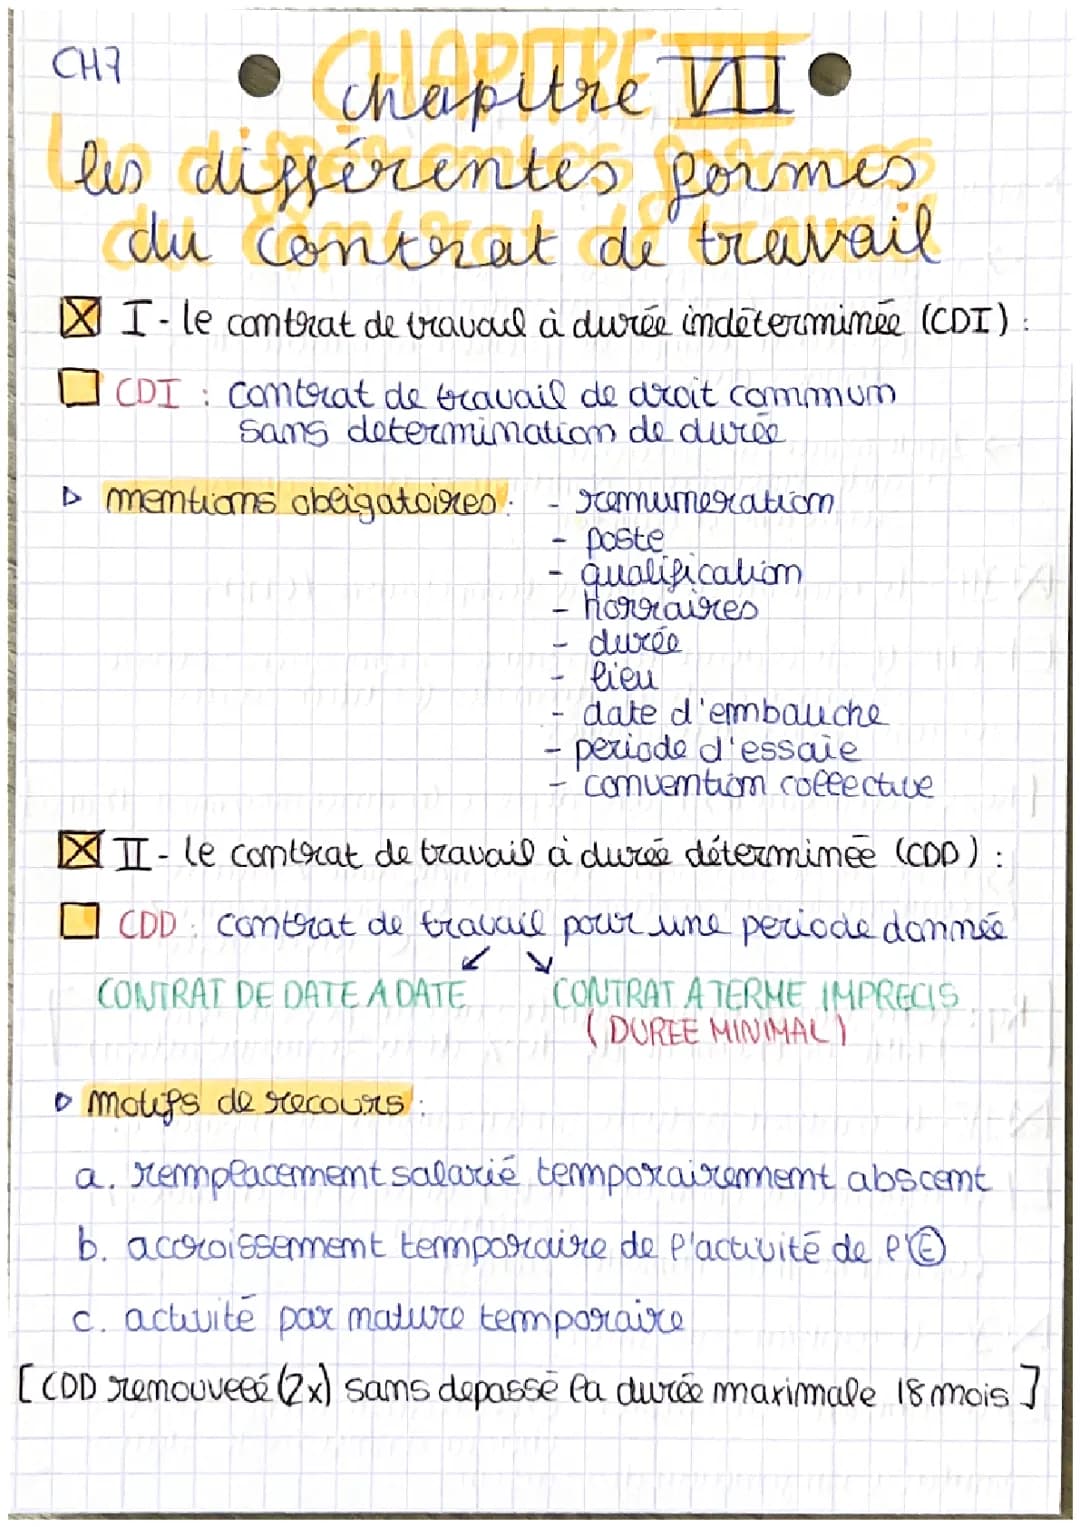 CH7
CHAPITRE VII
chapitre VII
les différentes formes
du contrat de travail
I - le contrat de travail à durée indéterminée (CDI) :
CDI : contrat de travail de droit commum
sans determination de durée
mentions obligatoires : - remuneration
- poste
- qualification
- horraires
- durée
- lieu
- date d'embauche
- periode d'essaie
- convention collective
II - le contrat de travail à durée déterminée (CDD) :
CDD : contrat de travail pour une periode donnée
↙ ↘
CONTRAT DE DATE A DATE CONTRAT A TERME IMPRECIS
(DUREE MINIMAL)
motifs de recours :
a. remplacement salarié temporairement abscent
b. accroissement temporaire de l'activité de l'Ⓔ
c. activité par nature temporaire
[ CDD renouvelé (2x) sans depassé la durée maximale 18 mois ]